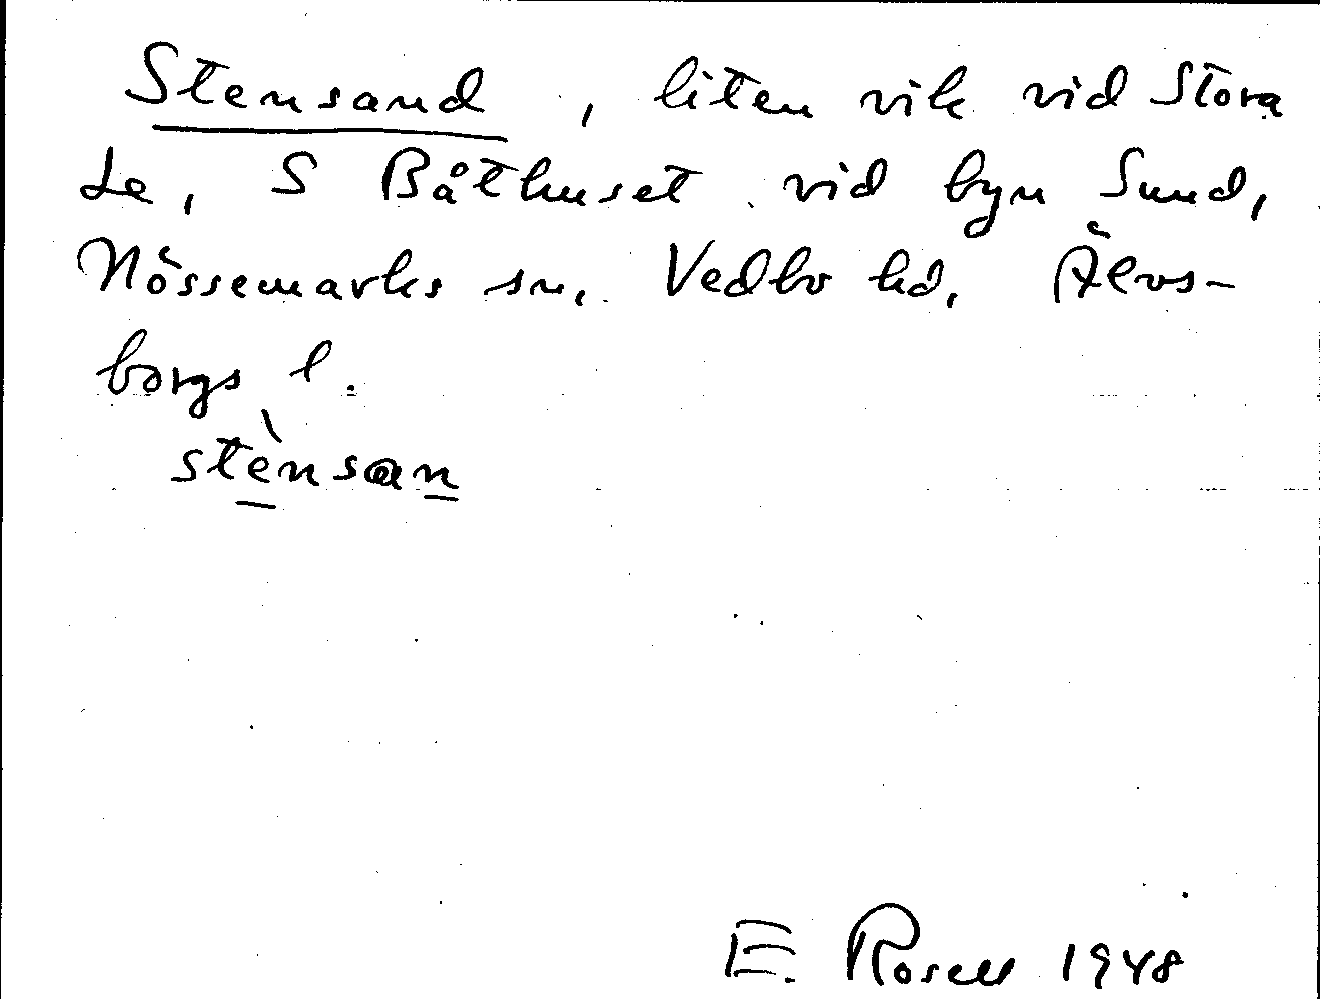 Stensand, liten vik vid Stora
Le, S Båthuset vid byn Sund,
Nössemarks sn. Vedbo hd, Älvs-
borgs l.
stènsan
E. Rosell 1948